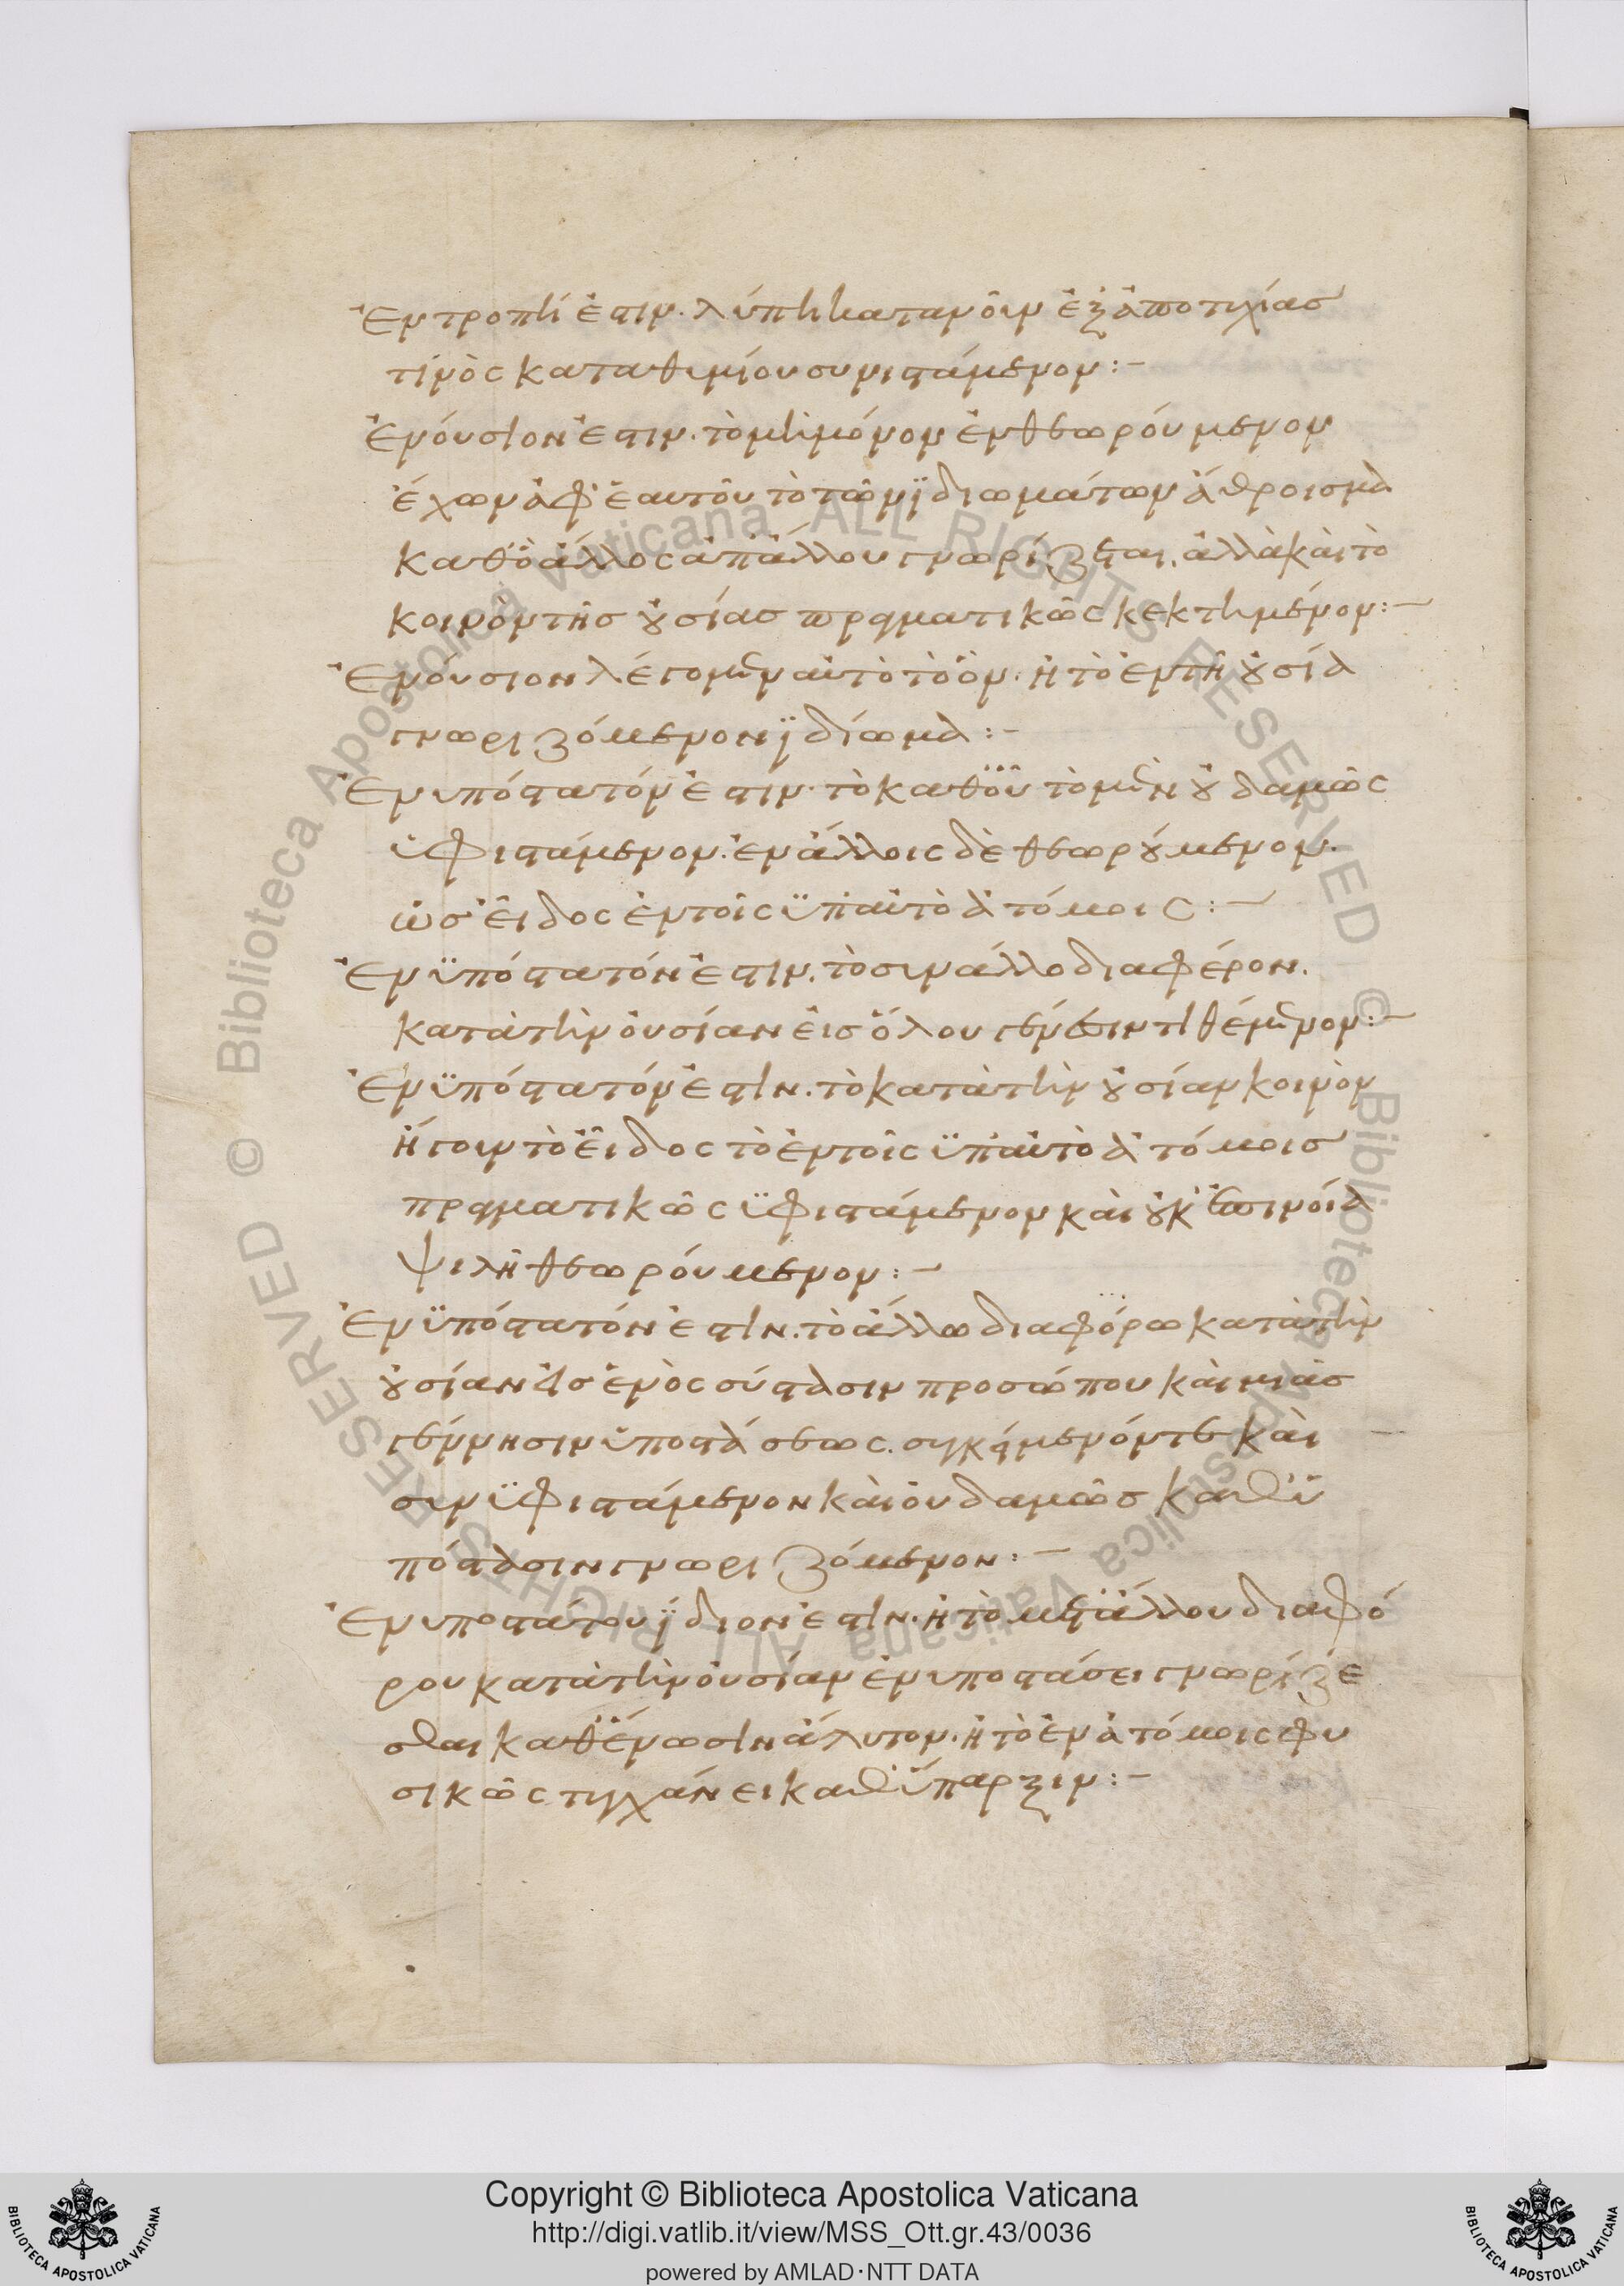 Ἐντροπή ἐστιν. λύπη κατανοῦν ἐξ ἀποτυχίας
τινὸς καταθυμίου συνιστάμενον:-
Ἐνούσιον ἐστιν. τὸ μὴ μόνον ἐνθεωρούμενον
ἔχων ἀφ' ἑαυτοῦ τὸ τῶν ϊδιωμάτων ἄθροισμα
καθ' ὃ ἄλλος ἀπ' ἄλλου γνωρίζεται. ἀλλὰ καὶ τὸ
κοινὸν τῆς οὐσίας πραγματικῶς κεκτημένον:-
Ἐνούσιον λέγομεν αὐτὸ τὸ ὂν. ἢ τὸ ἐν τῆ οὐσία
γνωριζόμενον ϊδίωμα:-
Ἐνυπόστατόν ἐστιν. τὸ καθ' ὃ οὖν τὸ μὲν οὐδαμῶς
ὑφιστάμενον. ἐν ἄλλοις δὲ θεωρούμενον.
ὡς εἶδος ἐν τοῖς ϋπ' αὐτὸ ἀτόμοις:-
Ἐνϋπόστατόν ἐστιν. τὸ σὺν ἄλλο διαφέρον.
κατὰ τὴν οὐσίαν εἰς ὅλου γένεσιν τιθέμενον:-
Ἐνϋπόστατόν ἐστιν. τὸ κατὰ τὴν οὐσίαν κοινὸν
ἤγουν τὸ εἶδος τὸ ἐν τοῖς ϋπ' αὐτὸ ἀτόμοις
πραγματικῶς ϋφιστάμενον καὶ οὐκ ἐπινοία
ψιλῆ θεωρούμενον:-
Ἐνϋπόστατόν ἐστιν. τὸ ἄλλω διαφόρω κατὰ τὴν
οὐσίαν εἰς ἑνὸς σύστασιν προσώπου καὶ μιᾶς
γέννησιν ὑποστάσεως. συγκείμενόν τε καὶ
συνϋφιστάμενον καὶ οὐδαμῶς καθ' ϋ
πόστασιν γνωριζόμενον:-
Ἐνυποστάτου ϊδιον ἐστιν. ἢ τὸ μετ' ἄλλου διαφό
ρου κατὰ τὴν οὐσίαν ἐν υποστάσει γνωρίζε
σθαι καθ' ἕνωσιν ἄλυτον. ἢ τὸ ἐν ἀτόμοις φυ
σικῶς τυγχάνει καθ' ὕπαρξιν:-
Copyright © Biblioteca Apostolica Vaticana
http://digi.vatlib.it/view/MSS_Ott.gr.43/0036
powered by AMLAD·NTT DATA